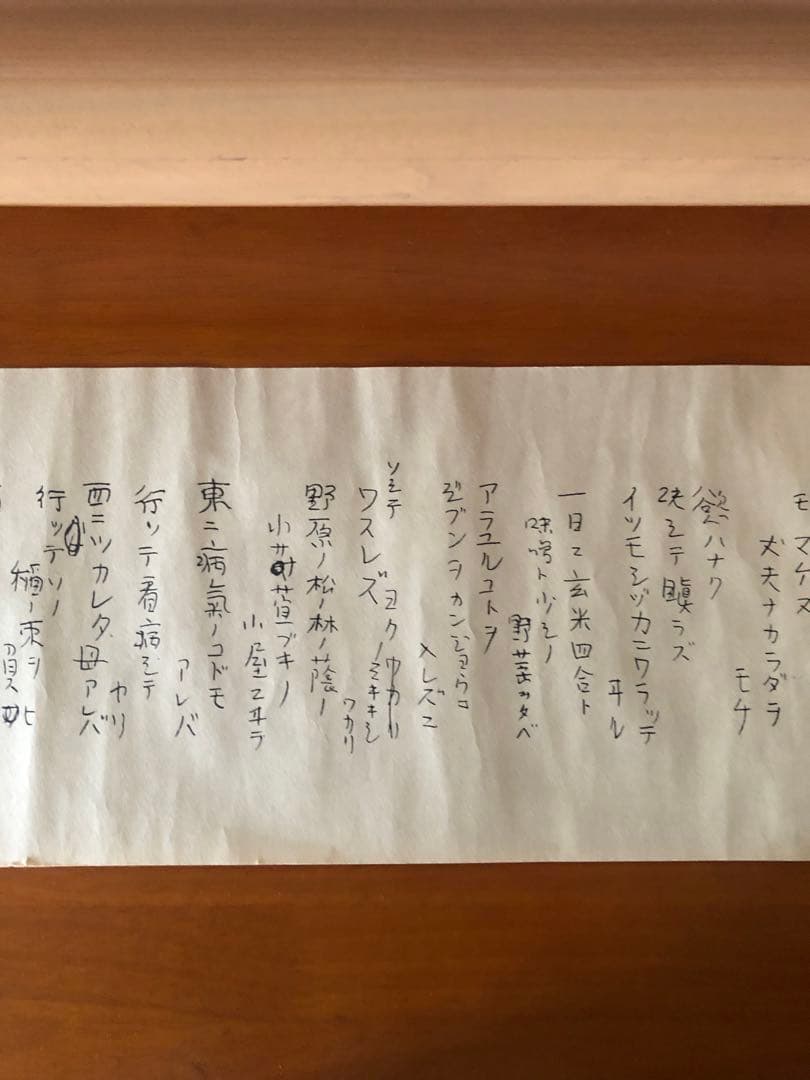 モマケヌ
丈夫ナカラダヲ
モチ
慾ハナク
決シテ瞋ラズ
イツモシヅカニワラッテ
ヰル
一日ニ玄米四合ト
味噌ト少シノ
野菜ヲタベ
アラユルコトヲ
ジブンヲカンジョウニ
入レズニ
ヨクミキキシ
ワカリ
ソシテ
ワスレズ
野原ノ松ノ林ノ蔭ノ
小サナ萓ブキノ
小屋ニヰテ
東ニ病氣ノコドモ
アレバ
行ッテ看病シテ
ヤリ
西ニツカレタ母アレバ
行ッテソノ
稲ノ束ヲ